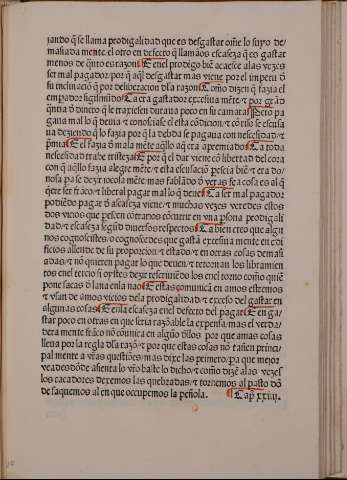 zando q̃ se llama prodigalidad que es desgastar om̃e lo suyo de
masiada mente. el otro en defecto q̃ llamãos escaseza q̃ es gastar
menos de q̃nto es razon. E enel prodigo bie acaesce alas vezes
ser mal pagador por q̃ aq̃l desgastar mas viene por el imperu ð
su inclinaciõ q̃ por deliberacion dla razon. Como dizen q̃ fazia el
empador sigismũdo. Ca era gastador excesiua mẽte & por grãd
q̃ntia ð dinero q̃ le traxiesen duraua poco en su camara. Pero pa
gaua mal lo q̃ deuia & conosciase el esta cõdicion & cõ riso se escusa
ua deziendo q̃ lo fazia por q̃ la debda se pagaua con necesidad &
p̃mia. E el fazia ð mala mẽte aq̃llo aq̃ era apremiado. Ca toda
necesidad trahe tristeza. E por q̃ el dar viene cõ libertad del cora
con q̃ aq̃llo fazia alegre mẽte & esta escusaciõ pescia biẽ & era do
nosa pa se dezir ioco la mẽte. mas fablãdo ð veras fea cosa es al q̃
q̃ere ser frãco & liberal pagar mal lo q̃ deue. Ca ser mal pagador
podiẽdo pagar ð escaseza viene & muchas vezes veredes estos
dos vicios que pescen cõtrarios cõcurrir en vna p̃sona prodigali
dad & escaseza segũd diuersos respectos. Ca bien creo que algu
nos cognoscistes o cognoscedes que gastã excesiua mente en edi
ficios allende de su proporcion & estado & en otras cosas demasi
adas & nõ quieren pagar lo que deuen & retornan los libramien
tos enel tercio si oystes dezir reseruiẽdo los enel torno como quiẽ
pone sacas ð lana enla nao. E estas comunicã en amos estremos
& vsan de amos vicios dela prodigalidad & exceso del gastar en
algunas cosas. E enla escaseza enel defecto del pagar. E en ga
star poco en otras en que seria razonable la expensa. mas el verda
dera mente frãco nõ comica en algũo dllos por que amas cosas
lleua por la regla dla razõ. & por que estas cosas nõ tañen princi
pal mente a v̄ras questiões. mas dixe las primero. pa que mejor
veades dõde asienta lo vr̃o baste lo dicho & como dizẽ alas vezes
los cacadores dexemos las quebradas & tornemos al pasto dõ
de saquemos al en que occupemos la peñola. Cap. xxiiij.